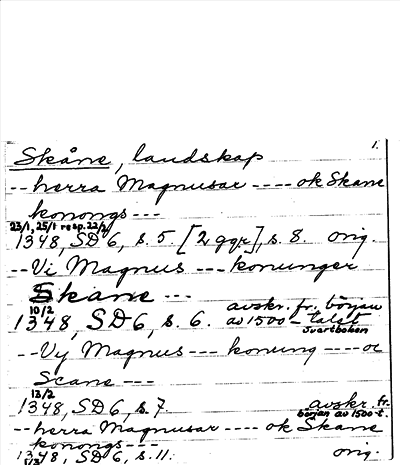 1.
Skåne, landskap
-- herra Magnusar ---- ok Skane
konongs ---
23/1, 25/1 resp. 22/2
1348, SD 6, s. 5 [2 ggr], s. 8. orig.
-- Vi Magnus --- konunger
Skane ---
10/2 avskr. fr. början
1348, SD 6, s. 6. av 1500-talet
Svartboken
-- Vy Magnus --- konung ---- oc
Scane ---
13/2
1348, SD 6, s. 7. avskr. fr.
början av 1500-t.
-- herra Magnusar --- ok Skane
konongs ---
1348, SD 6, s. 11. orig.